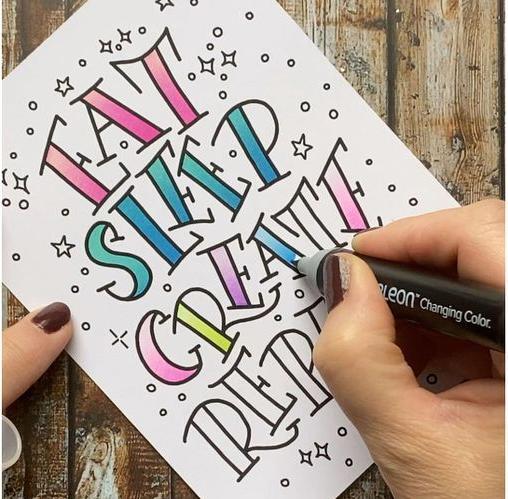 EAT
SLEEP
CREATE
REP
LEON™ Changing Color.